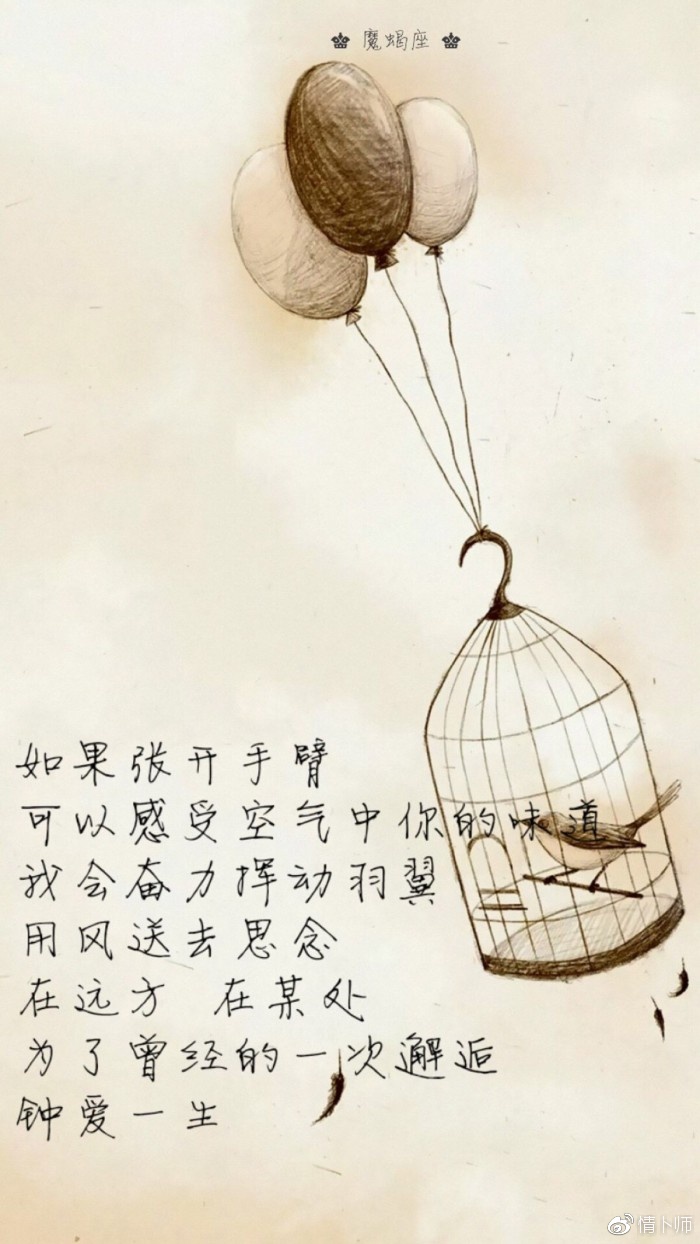 魔蝎座
如果张开手臂
可以感受空气中你的味道
我会奋力挥动羽翼
用风送去思念
在远方 在某处
为了曾经的一次邂逅
钟爱一生
情卜师